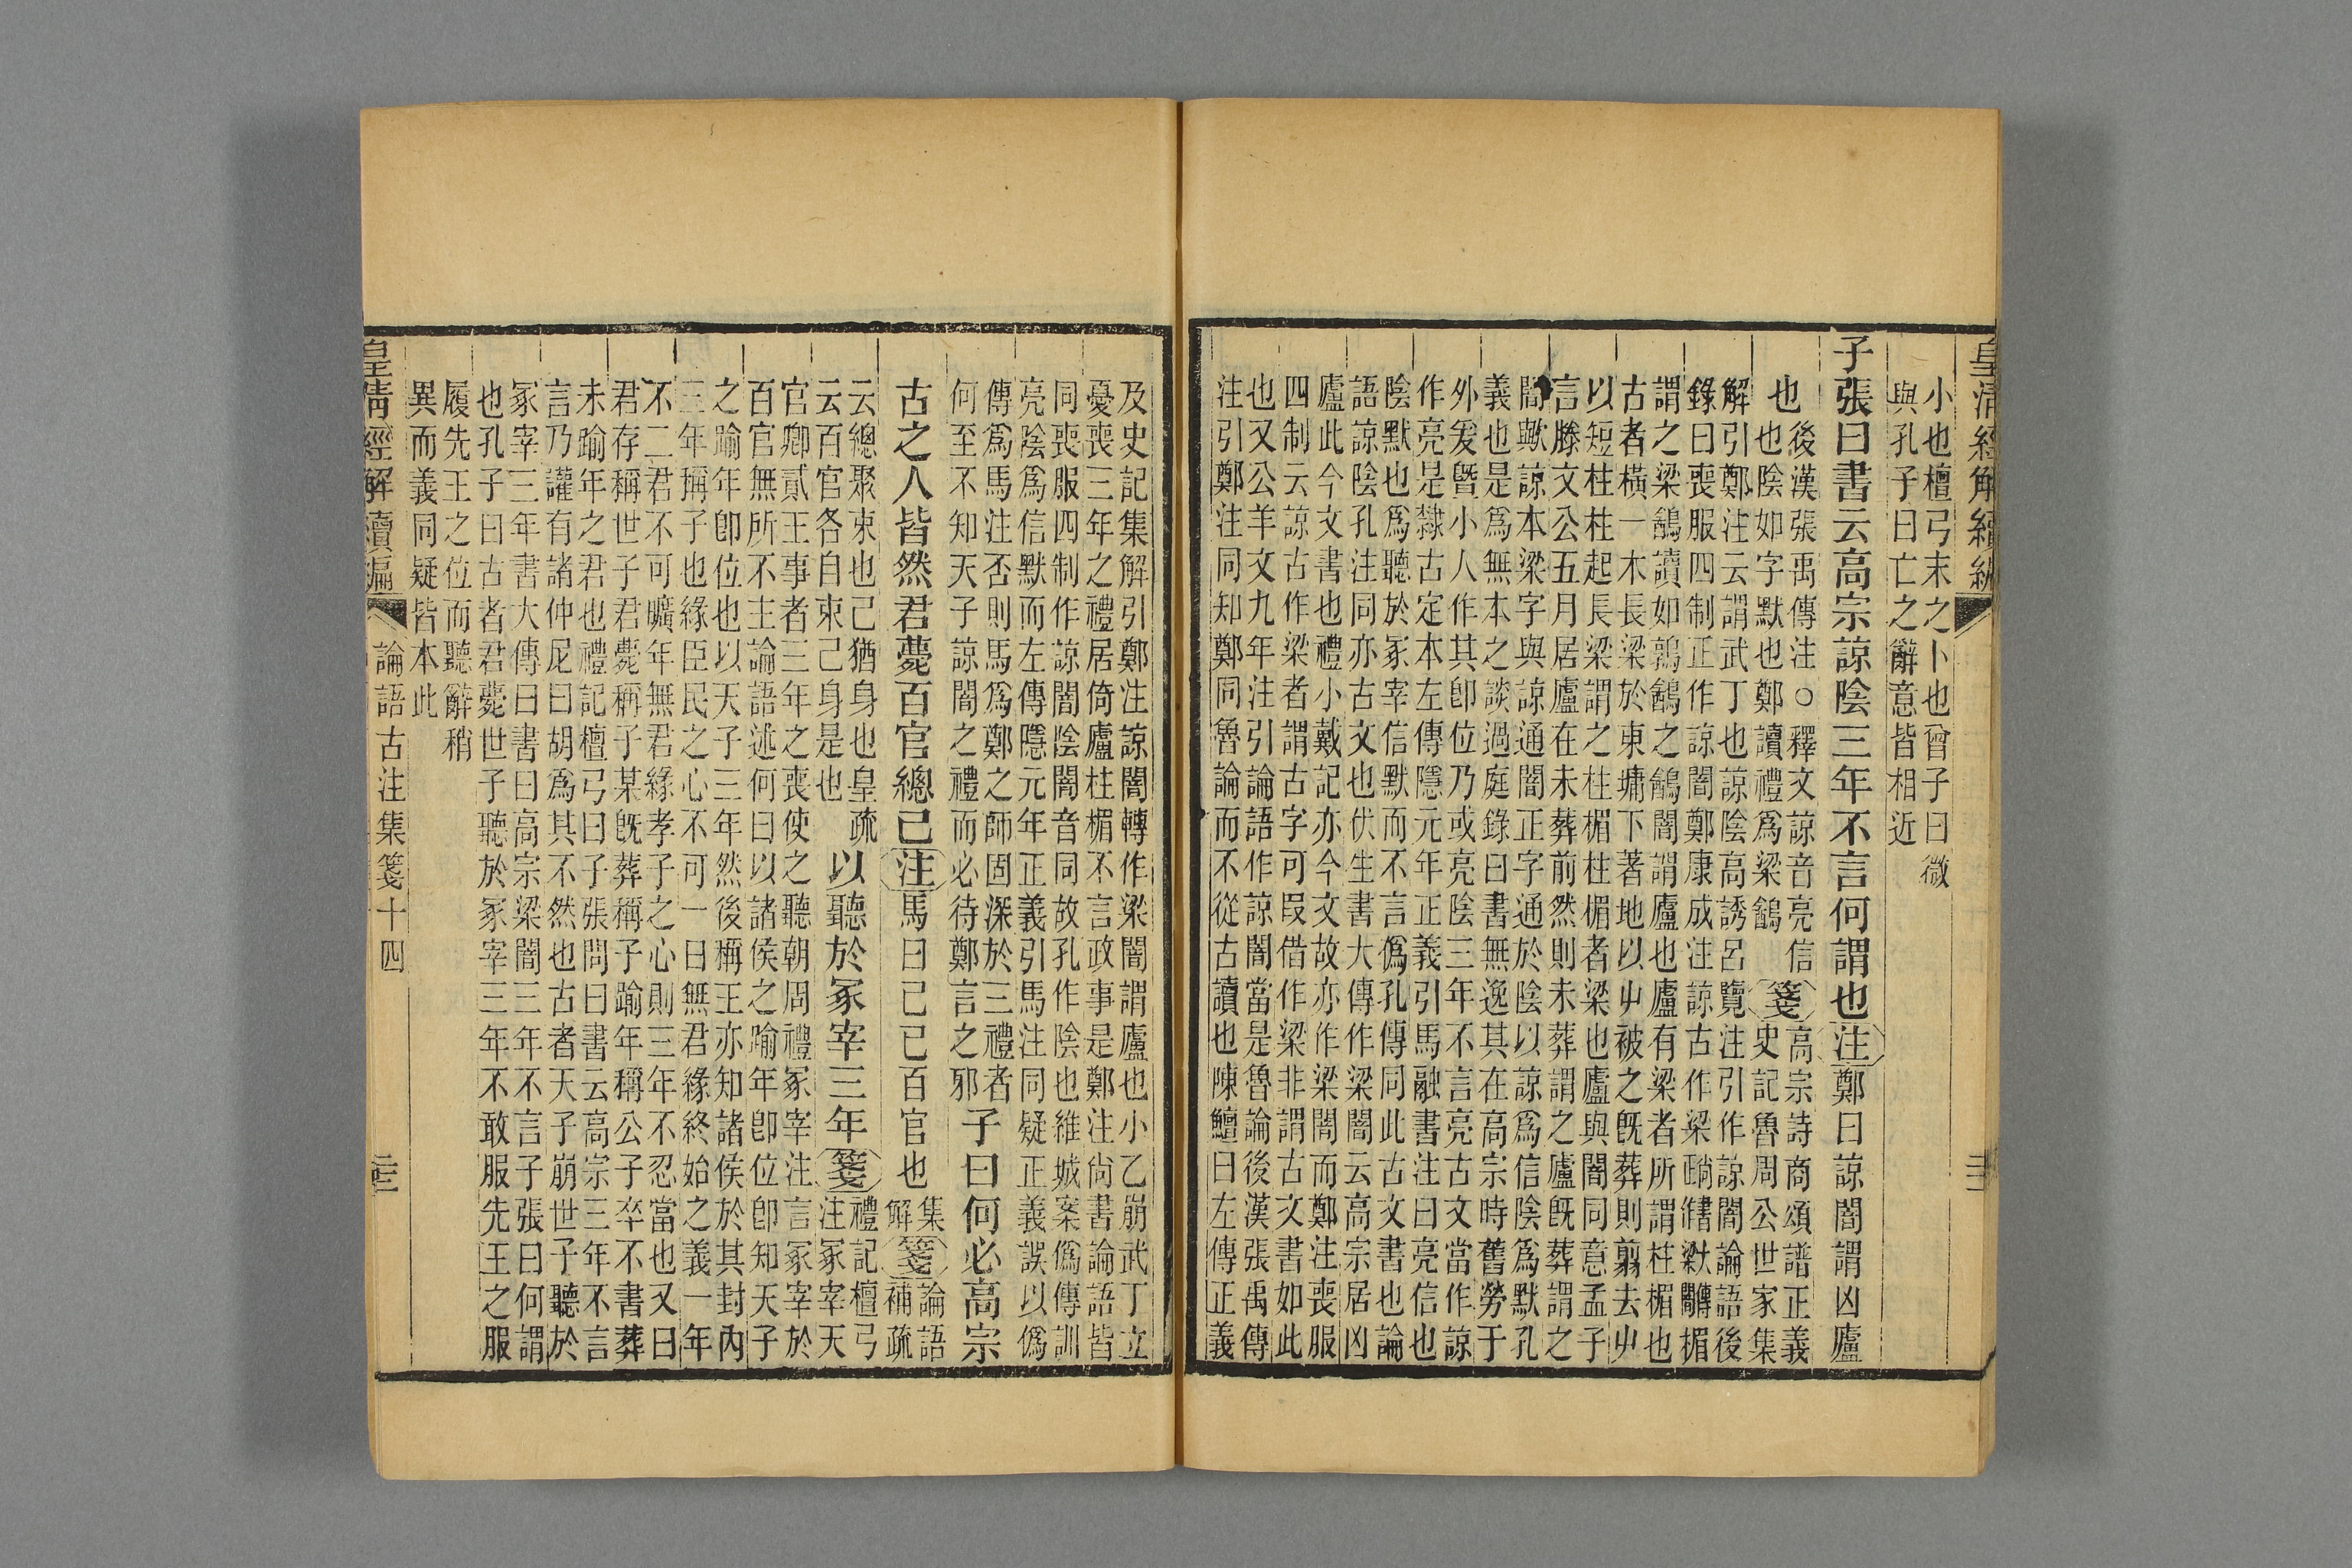 皇清經解續編
小也檀弓末之卜也曾子曰微
與孔子曰亡之辭意皆相近
子張曰書云高宗諒陰三年不言何謂也注鄭曰諒闇謂凶廬
也後漢張禹傳注○釋文諒音亮信
也陰如字默也鄭讀禮爲梁鵪
箋高宗詩商頌譜正義
史記魯周公世家集
解引鄭注云謂武丁也諒陰高誘呂覽注引作諒闇論語後
錄曰喪服四制正作諒闇鄭康成注諒古作梁
楣
謂之梁鵪讀如鶉鵪之鵪闇謂廬也廬有梁者所謂柱楣也
古者橫一木長梁於東墉下著地以屮被之旣葬則翦去屮
以短柱柱起長梁謂之柱楣柱楣者梁也廬與闇同意孟子
言滕文公五月居廬在未葬前然則未葬謂之廬旣葬謂之
闇歟諒本梁字與諒通闇正字通於陰以諒爲信陰爲默孔
義也是爲無本之談過庭錄曰書無逸其在高宗時舊勞于
外爰曁小人作其卽位乃或亮陰三年不言亮古文當作諒
作亮是隸古定本左傳隱元年正義引馬融書注曰亮信也
陰默也爲聽於冢宰信默而不言僞孔傳同此古文書也論
語諒陰孔注同亦古文也伏生書大傳作梁闇云高宗居凶
廬此今文書也禮小戴記亦今文故亦作梁闇而鄭注喪服
四制云諒古作梁者謂古字可叚借作梁非謂古文書如此
也又公羊文九年注引論語作諒闇當是魯論後漢張禹傳
注引鄭注同知鄭同魯論而不從古讀也陳鱣曰左傳正義
及史記集解引鄭注諒闇轉作梁闇謂廬也小乙崩武丁立
憂喪三年之禮居倚廬柱楣不言政事是鄭注尙書論語皆
同喪服四制作諒闇陰闇音同故孔作陰也維城案僞傳訓
亮陰爲信默而左傳隱元年正義引馬注同疑正義誤以僞
傳爲馬注否則馬爲鄭之師固深於三禮者
何至不知天子諒闇之禮而必待鄭言之邪
子曰何必高宗
古之人皆然君薨百官總己注馬曰己已百官也
集
解
箋論語
補疏
云總聚束也己猶身也皇疏
云百官各自束己身是也
以聽於冢宰三年箋禮記檀弓
注冢宰天
官卿貳王事者三年之喪使之聽朝周禮冢宰注言冢宰於
百官無所不主論語述何曰以諸侯之踰年卽位卽知天子
之踰年卽位也以天子三年然後稱王亦知諸侯於其封內
三年稱子也緣臣民之心不可一日無君緣終始之義一年
不二君不可曠年無君緣孝子之心則三年不忍當也又曰
君存稱世子君薨稱子某旣葬稱子踰年稱公子卒不書葬
未踰年之君也禮記檀弓曰子張問曰書云高宗三年不言
言乃讙有諸仲尼曰胡爲其不然也古者天子崩世子聽於
冢宰三年書大傳曰書曰高宗梁闇三年不言子張曰何謂
也孔子曰古者君薨世子聽於冢宰三年不敢服先王之服
履先王之位而聽辭稍
異而義同疑皆本此
皇清經解續編
論語古注集箋十四